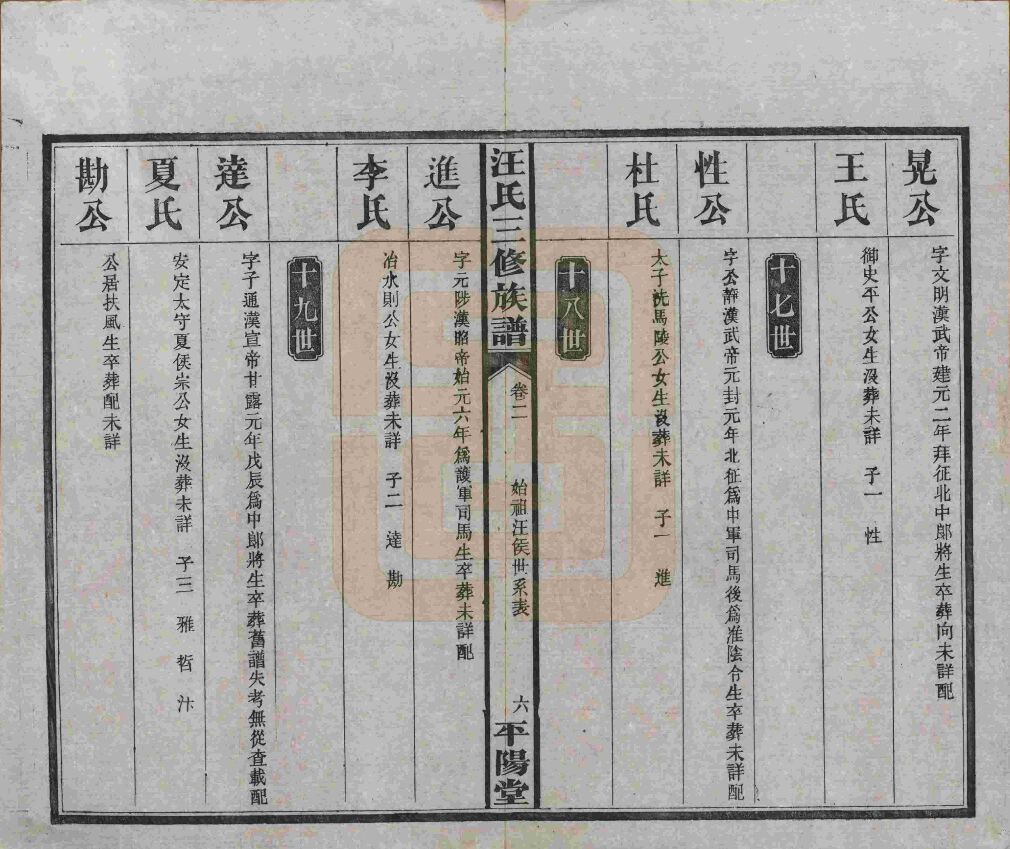 晃公
字文明漢武帝建元二年拜征北中郎將生卒葬向未詳配
王氏
御史平公女生沒葬未詳 子一 性
十七世
性公
字公靜漢武帝元封元年北征爲中軍司馬後爲淮陰令生卒葬未詳配
杜氏
太子洗馬陵公女生沒葬未詳 子一 進
十八世
汪氏三修族譜
卷二 始祖汪侯世系表 六
平陽堂
進公
字元陟漢昭帝始元六年爲護軍司馬生卒葬未詳配
李氏
冶水則公女生沒葬未詳 子二 達 勘
十九世
達公
字子通漢宣帝甘露元年戊辰爲中郎將生卒葬舊譜失考無從查載配
夏氏
安定太守夏侯崇公女生沒葬未詳 子三 雅 哲 汴
勘公
公居扶風生卒葬配未詳